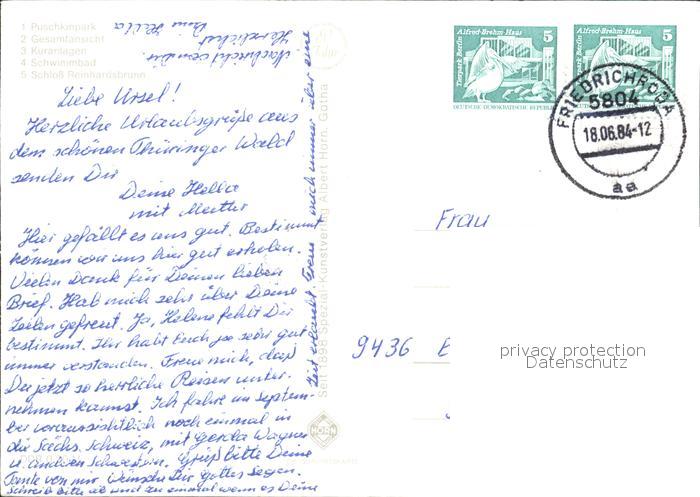 1 Puschkinpark
2 Gesamtansicht
3 Kuranlagen
4 Schwimmbad
5 Schloß Reinhardsbrunn
Liebe Ursel!
Herzliche Urlaubsgrüße aus
dem schönen Thüringer Wald
senden Dir
Deine Hella
mit Mutter
Hier gefällt es uns gut. Bestimmt
können wir uns hier gut erholen.
Vielen Dank für Deinen lieben
Brief. Hab mich sehr über Deine
Zeilen gefreut. Ja, Helene fehlt Dir
bestimmt. Ihr habt Euch ja sehr gut
immer verstanden. Freue mich, daß
Du jetzt so herrliche Reisen unter-
nehmen kannst. Ich fahre im Septem-
ber voraussichtlich noch einmal in
die Sächs. Schweiz, mit Gerda Wagner
u. anderen Schwestern. Grüß bitte Deine
Tante von mir. Wünsche Dir Gottes Segen.
Schreib bitte ab und zu einmal wenn es Deine
Zeit erlaubt. Freue mich immer über eine
Nachricht von Dir
Herzlichst
Deine Hella
Seit 1898 Spezial-Kunstverlag Albert Horn, Gotha
HORN
Tierpark Berlin
Alfred-Brehm-Haus
5
DEUTSCHE DEMOKRATISCHE REPUBLIK
Tierpark Berlin
Alfred-Brehm-Haus
5
FRIEDRICHRODA
5804
18.06.84-12
aa
Frau
9436
privacy protection
Datenschutz